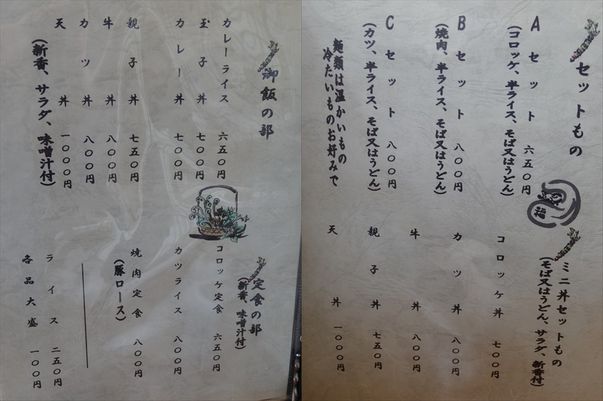 セットもの
A セット 六五〇円
(コロッケ、半ライス、そば又はうどん)
B セット 八〇〇円
(焼肉、半ライス、そば又はうどん)
C セット 八〇〇円
(カツ、半ライス、そば又はうどん)
麺類は温かいもの
冷たいものお好みで
ミニ丼セットもの
(そば又はうどん、サラダ、新香付)
コロッケ丼 七〇〇円
カツ丼 八〇〇円
牛丼 八〇〇円
親子丼 七五〇円
天丼 一〇〇〇円
御飯の部
カレーライス 六五〇円
玉子丼 七〇〇円
カレー丼 七〇〇円
親子丼 七五〇円
牛丼 八〇〇円
カツ丼 八〇〇円
天丼 一〇〇〇円
(新香、サラダ、味噌汁付)
定食の部
(新香、味噌汁付)
コロッケ定食 六五〇円
カツライス 八〇〇円
焼肉定食 八〇〇円
(豚ロース)
ライス 二五〇円
各品大盛 一〇〇円